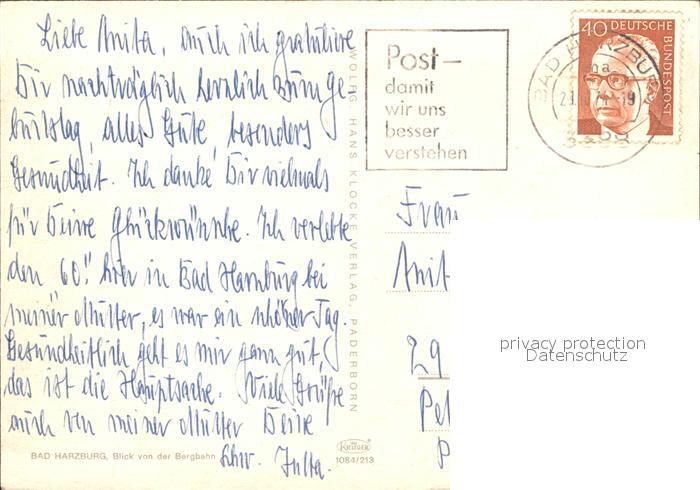 Liebe Anita, auch ich gratuliere
Dir nachträglich herzlich zum Ge-
burtstag, alles Gute, besonders
Gesundheit. Ich danke Dir vielmals
für Deine Glückwünsche. Ich verlebte
den 60. hier in Bad Harzburg bei
meiner Mutter, es war ein schöner Tag.
Gesundheitlich geht es mir ganz gut,
das ist die Hauptsache. Viele Grüße
auch von meiner Mutter Deine
Schw. Jutta.
BAD HARZBURG, Blick von der Bergbahn
WOLFG. HANS KLOCKE VERLAG, PADERBORN
KRÜGER
1084/213
Post-
damit
wir uns
besser
verstehen
BAD HARZBURG
40 DEUTSCHE
BUNDESPOST
Frau
Anit
29
Pel
P
privacy protection
Datenschutz